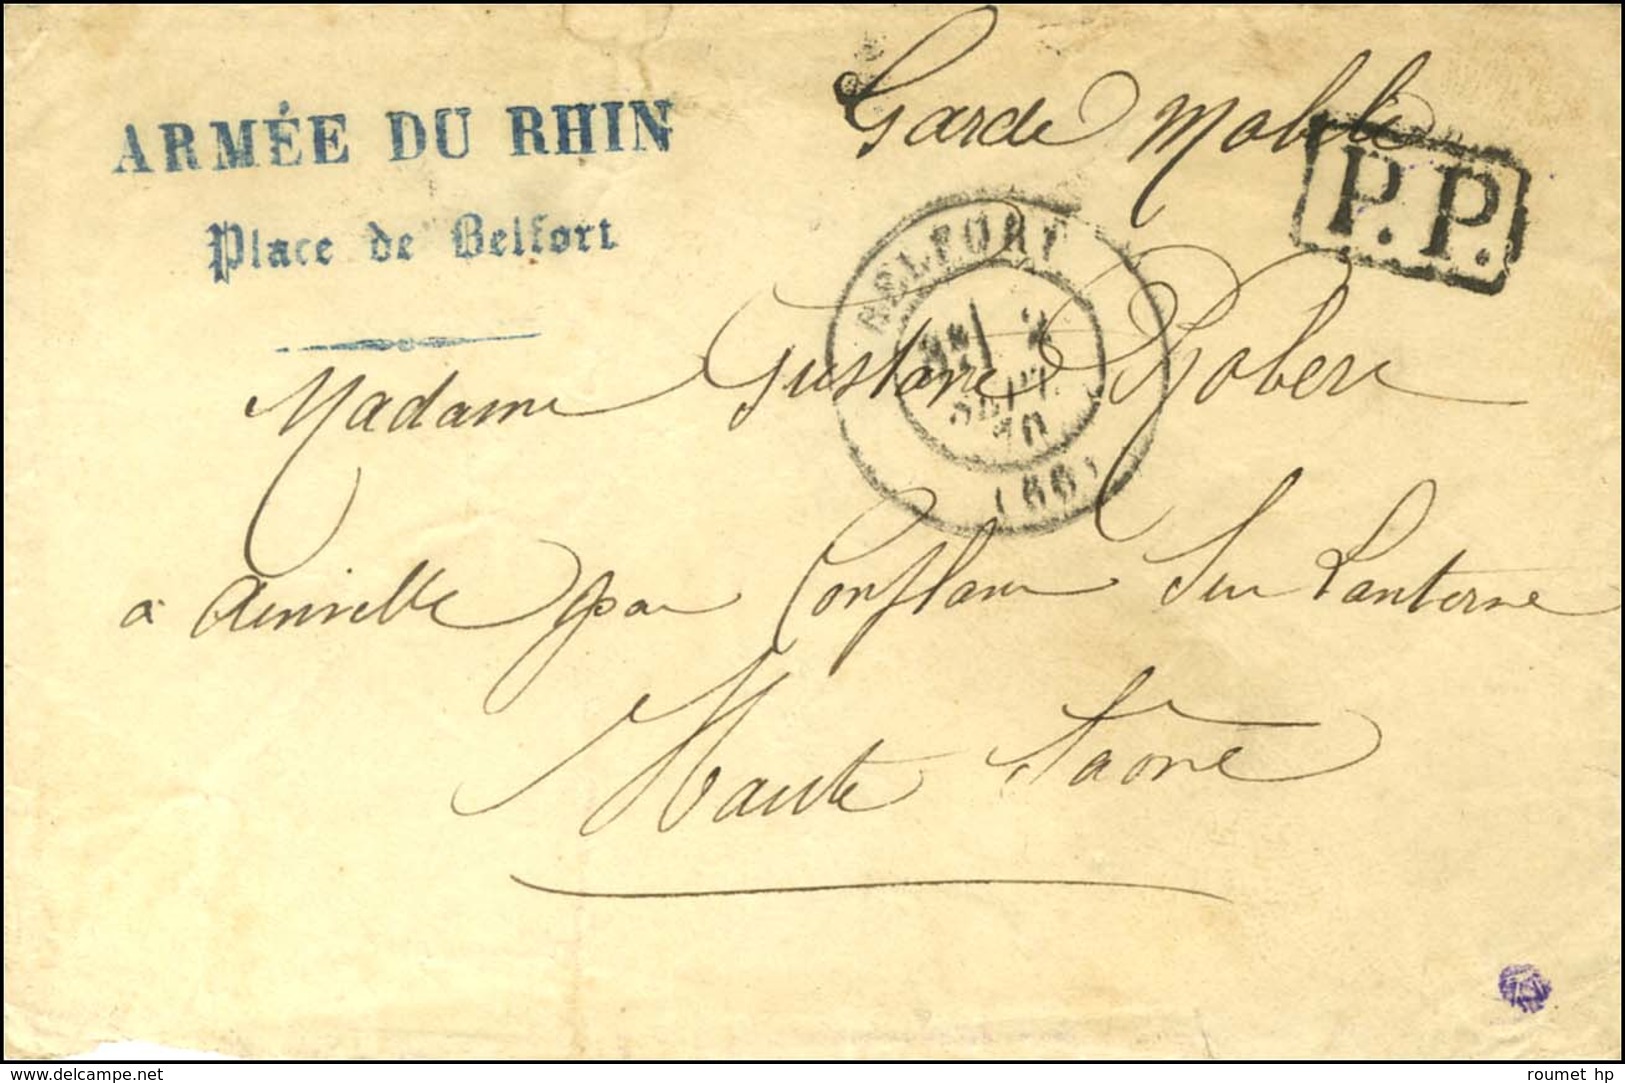 Garde Mobile
ARMÉE DU RHIN
P.P.
Place de Belfort
BELFORT
2
SEPT.
70
(66)
Madame Gustave Robert
à Ainvelle par Conflans Sur Lanterne
Haute Saône
www.delcampe.net
roumet hp